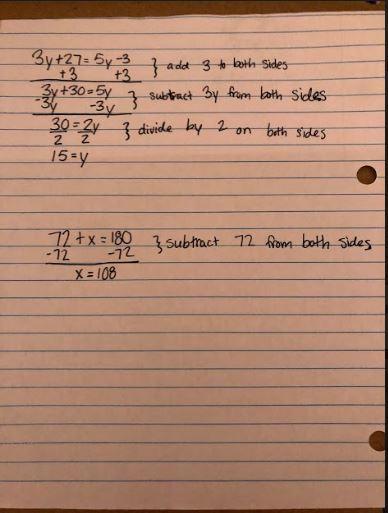 3y+27=5y-3 } add 3 to both sides
+3 +3
3y+30=5y } subtract 3y from both sides
-3y -3y
30=2y } divide by 2 on both sides
2 2
15=y
72+x=180 } subtract 72 from both sides
-72 -72
x=108